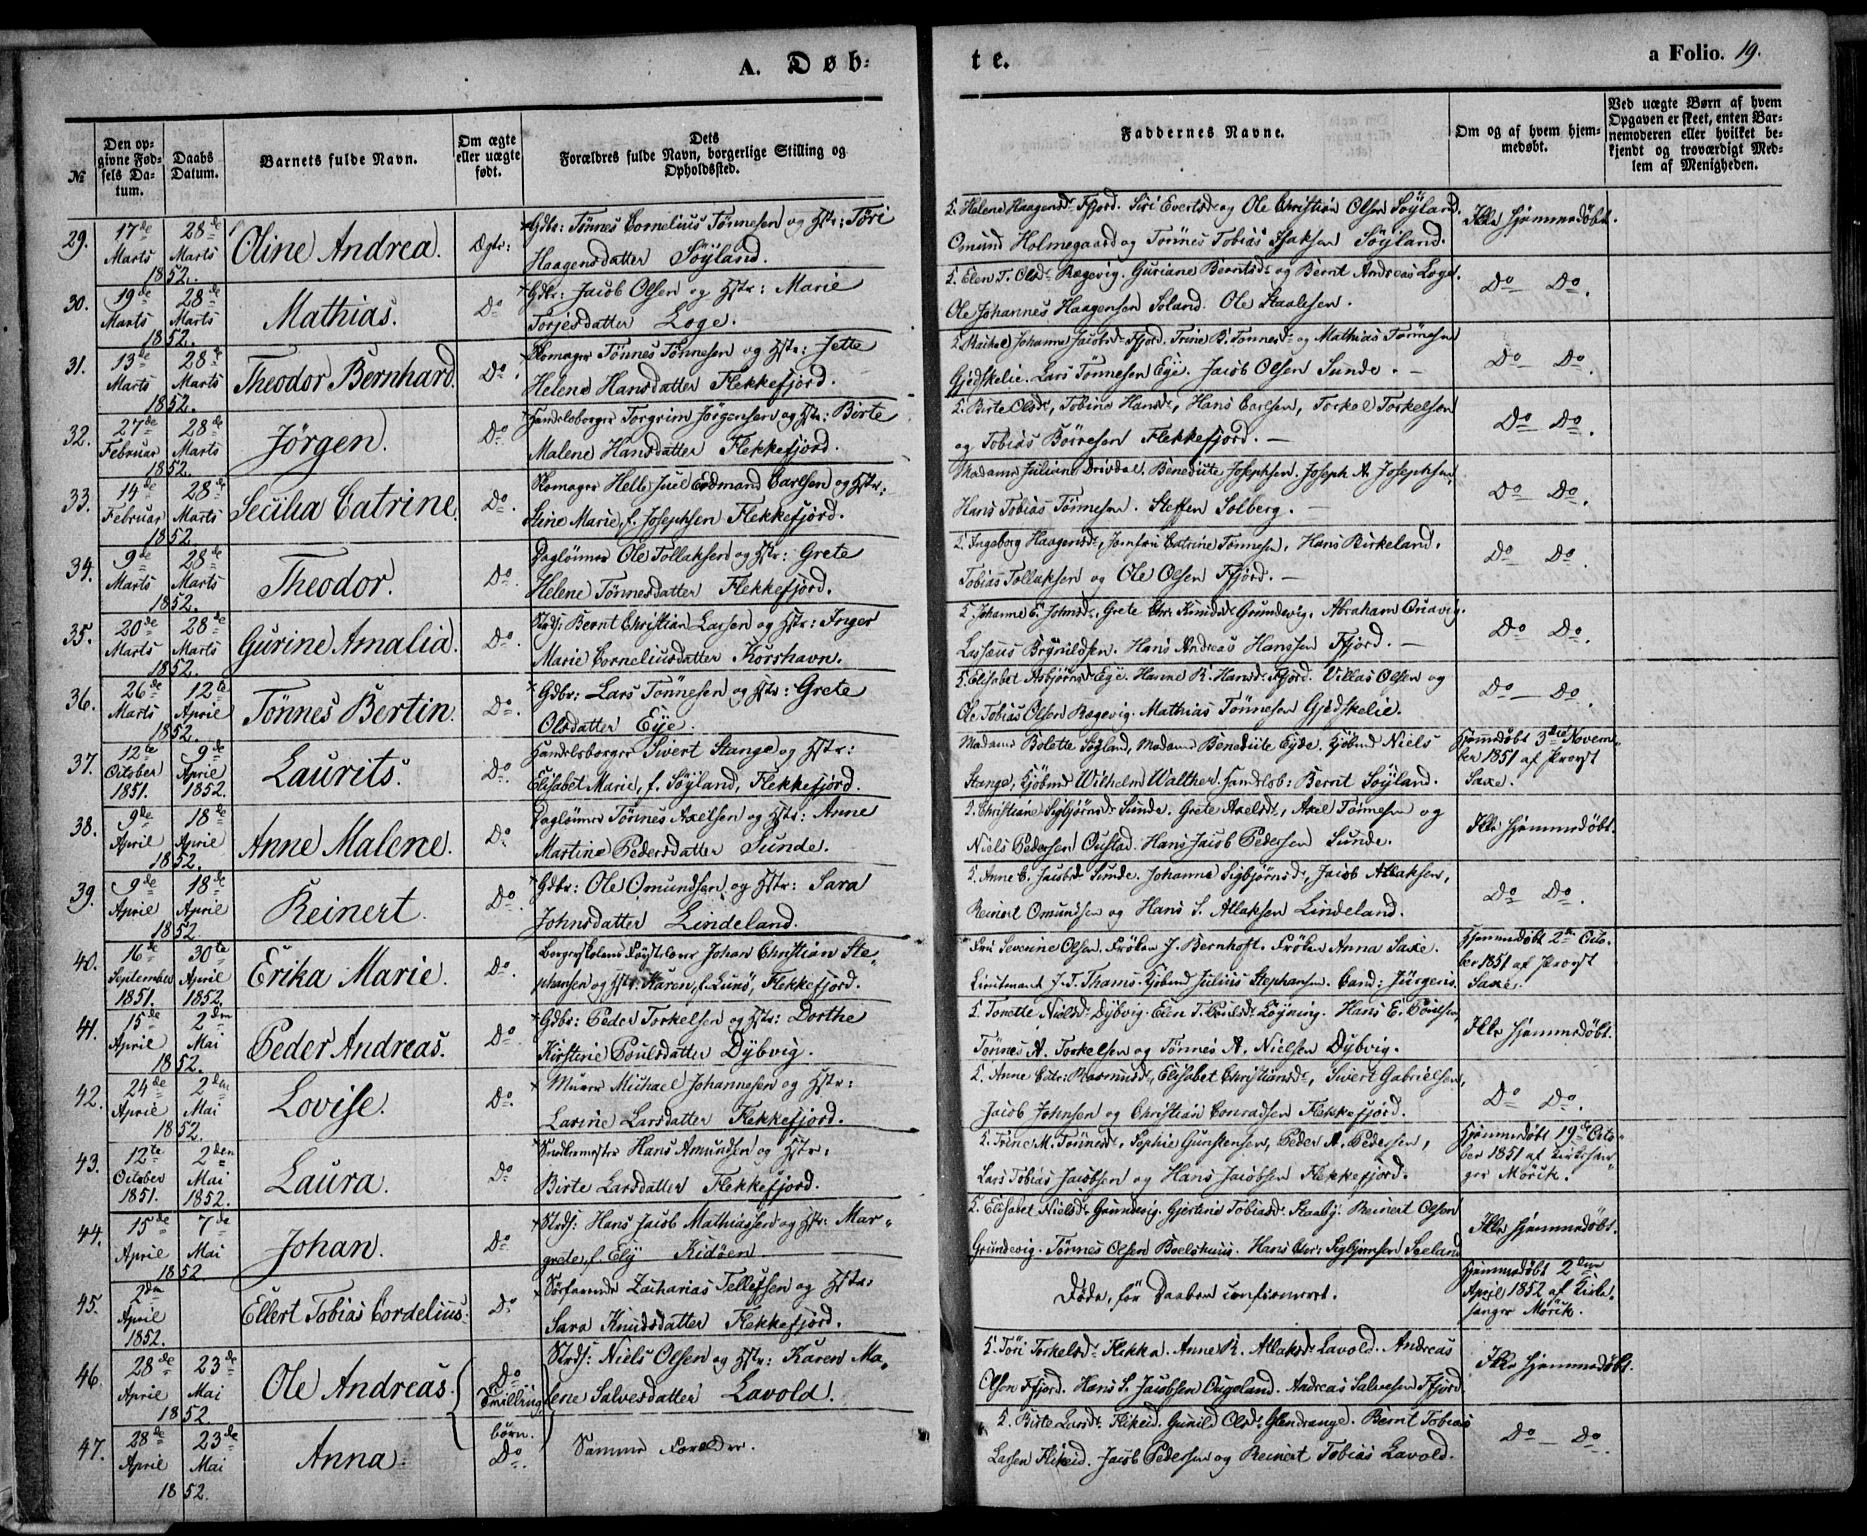 A. Døb-
te.
a Folio. 19.
№
Den op-
givne Fød-
sels Da-
tum.
Daabs
Datum.
Barnets fulde Navn.
Om ægte
eller uægte
født.
Dets
Forældres fulde Navn, borgerlige Stilling og
Opholdssted.
Faddernes Navne.
Om og af hvem hjem-
medøbt.
Ved uægte Børn af hvem
Opgaven er skeet, enten Bar-
nemoderen eller hvilket be-
kjendt og troværdigt Med-
lem af Menigheden.
29. 17de Marts 28de Marts 1852. Oline Andrea. Ægte:
Gdbr: Tønnes Cornelius Tønnesen og Hstr: Tøri
Haagensdatter Söyland.
Helene Haagensd. Ffjord. Siri Evertsd. og Ole Christian Olsen Söyland.
Omund Holmegaard og Tønnes Tobias Isaksen Söyland.
Ikke hjemmedøbt.
30. 19de Marts 28de Marts 1852. Mathias. Do
Gdbr: Jacob Olsen og Hstr: Marie
Torjesdatter Loge.
Elen T. Olsd. Ragevig. Guriane Berntsd. og Bernt Andreas Loge.
Ole Johannes Haagensen Soland. Ole Staalesen.
Do — Do.
31. 13de Marts 28de Marts 1852. Theodor Bernhard. Do.
Blomager Tønnes Tønnesen og Hstr: Jette
Helene Hansdatter Flekkefjord.
Rachel Johanne Jacobsd. Ffjord. Trine B. Tønnesd. og Mathias Tønnesen
Gjedskelie. Lars Tønnesen Eye. Jacob Olsen Sunde. —
Do Do.
32. 27de Februar 28de Marts 1852. Jörgen. Do.
Handelsborger Torgrim Jørgensen og Hstr: Birte
Malene Hansdatter Flekkefjord.
Birte Olsd., Tobine Hansd., Hans Carlsen, Torkel Torkelsen
og Tobias Börresen Flekkefjord. —
Do Do.
33. 14de Februar 28de Marts 1852. Secilia Catrine. Do.
Blomager Helle Juel Eedmand Carlsen og Hstr:
Stine Marie, f. Josephsen Flekkefjord.
Madame Juliane Drivdal. Benedicte Josephsen. Joseph A. Josephsen,
Hans Tobias Tønnesen. Steffen Solberg. —
Do Do.
34. 9de Marts 28de Marts 1852. Theodor. Do.
Dagløner Ole Tollaksen og Hstr: Grete
Helene Tönnesdatter Flekkefjord.
Ingeborg Haagensd., Jomfru Catrine Tønnesen, Hans Birkeland,
Tobias Tollaksen og Ole Olsen Ffjord. —
Do Do.
35. 20de Marts 28de Marts 1852. Gurine Amalia. Do.
Strds: Bernt Christian Larsen og Hstr: Inger
Marie Corneliusdatter Korshavn.
Johanne E. Johnsd., Grete Chr. Knudsd. Grundevig. Abraham
Lasseus Brynildsen. Hans Andreas Hanssen Ffjord. —
Do Do.
36. 26de Marts 12te April 1852. Tönnes Bertin. Do.
Gdbr: Lars Tönnesen og Hstr: Grete
Olsdatter Eye.
Elisabet Asbjørnsd. Eye. Hanne R. Hansd. Ffjord. Villas Olsen og
Ole Tobias Olsen Ragevig. Mathias Tønnesen Gjedskelie.
Do — Do.
37. 12te October 1851. 9de April 1852. Laurits. Do.
Handelsborger Sivert Stange og Hstr:
Elisabet Marie, f. Söyland, Flekkefjord.
Madame Bolette Söyland, Madame Benedicte Eyde. Kjöbmd. Niels
Stange, Kjöbmd. Wilhelm Walther. Handlsb: Bernt Söyland.
Hjemmedøbt 3die Novem-
ber 1851 af Provst
Saxe.
38. 9de April 18de April 1852. Anne Malene. Do
Dagløner Tönnes Axelsen og Hstr: Anne
Martine Pedersdatter Sunde.
Christiane Sigbjørnsd. Sunde. Grete Axelsd., Axel Tønnesen og
Niels Pedersen Oustad. Hans Jacob Pedersen Sunde.
Ikke hjemmedøbt.
39. 9de April 18de April 1852. Reinert. Do.
Gdbr: Ole Omundsen og Hstr: Sara
Johnsdatter Lindeland.
Anne E. Jacobsd. Sunde. Johanne Sigbjørnsd., Jacob Atlaksen,
Reinert Omundsen og Hans S. Atlaksen Lindeland.
Do Do.
40. 16de September 1851. 30te April 1852. Erika Marie. Do.
Borgerskolens Johan Christian Ste-
phansen og Hstr: Karen, f. Lund, Flekkefjord.
Fru Severine Olsen. Frøken J. Bernhoft. Frøken Anna Saxe.
Lieutenant J. T. Thams. Kjöbmd. Julius Stephansen. Cand: Jürgens.
Hjemmedøbt 2den Octo-
ber 1851 af Provst
Saxe.
41. 15de April 2den Mai 1852. Peder Andreas. Do.
Gdbr: Peder Torkelsen og Hstr: Dorthe
Kirstine Poulsdatter Dybvig.
Tonette Nielsd. Dybvig. Elen T. Poulsd. Løyning. Hans E. Poulsen,
Tönnes A. Torkelsen og Tönnes A. Nielsen Dybvig.
Ikke hjemmedøbt.
42. 24de April 2den Mai 1852. Lovise. Do.
Murer Michael Johannesen og Hstr:
Lavine Larsdatter Flekkefjord.
Anne Catr: Rasmusd., Elisabet Christiansd., Sivert Gabrielsen,
Jacob Johnsen og Christian Conradsen Flekkefjord.
Do Do.
43. 12te October 1851. 2den Mai 1852. Laura. Do
Snedkermester Hans Amundsen og Hstr:
Birte Larsdatter Flekkefjord.
Trine M. Tønnesd., Sophie Gunstensen, Peder A. Pedersen,
Lars Tobias Jacobsen og Hans Jacobsen Flekkefjord.
Hjemmedøbt 19de Octo-
ber 1851 af Kirkesan-
ger Mörik.
44. 15de April 7de Mai 1852 Johan. Do
Strds: Hans Jacob Mathiassen og Hstr: Mar-
grete, f. Ely Kidöen.
Elisabet Nielsd. Grundevig. Gjertine Tobiasd. Staaby. Reinert Olsen
Grundevig. Tönnes Olsen Boelshuus. Hans Chr: Sigbjørnsen Seeland
Ikke hjemmedøbt.
45. 2den April 1852. Ellert Tobias Cordelius. Do
Söefarende Zacharias Tellefsen og Hstr:
Sara Knudsdatter Flekkefjord.
Døde, før Daaben confirmeret.
Hjemmedøbt 2den
April 1852 af Kirke-
sanger Mörik.
46. 28de April 23de Mai 1852. Ole Andreas. Do Tvilling-
Strds: Niels Olsen og Hstr: Karen Ma-
lene Salvesdatter Lavold.
Töri Torkelsd. Flikka. Anne K. Atlaksd. Lavold. Andreas
Olsen Ffjord. Hans S. Jacobsen Ougeland. Andreas Salvesen Ffjord
Ikke hjemmedøbt.
47. 28de April 23de Mai 1852. Anna. børn. Do.
Samme Forældre.
Birte Larsd. Flikeid. Gunild Olsd. Glendrange. Bernt Tobias
Larsen Flikeid. Jacob Pedersen og Reinert Tobias Lavold.
Do — Do.